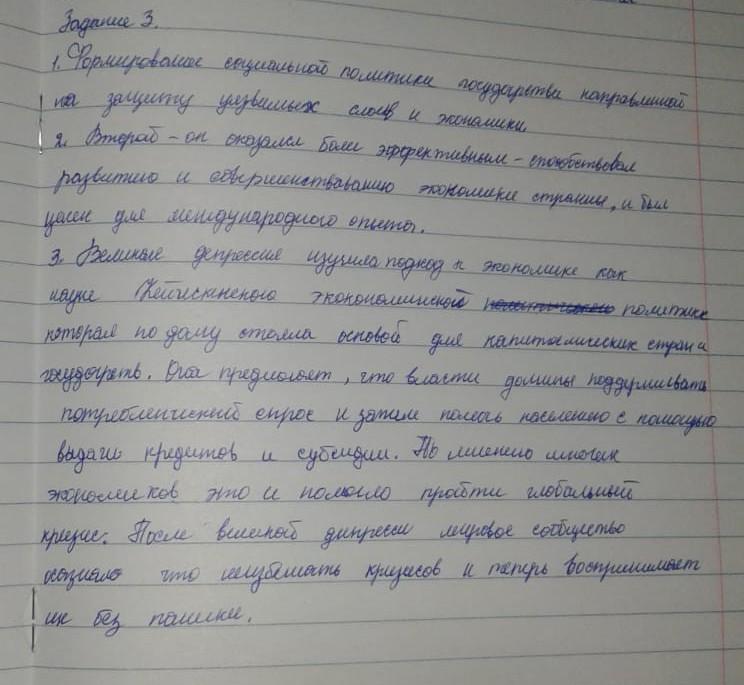 Задание 3.
1. Формирование социальной политики государства направленной
на защиту уязвимых слоев и экономики.
2. Второй - он оказался более эффективным - способствовал
развитию и совершенстваванию экономике страны, и был
ценен для международного опыта.
3. Великая депрессия изучила подход к экономике как
науке экономической политике
которая по стояла основой для капиталических стран и
государств. Она предлогает, что власти должны поддерживать
потребленческий спрос и затем помочь населению с помощью
выдачи кредитов и субсидии. По мнению многих
экономиков это и помогло пройти глобальный
кризис. После великой дипресси мировое сообщество
осознало что неизбежать кризисов и теперь воспринимает
их без паники.